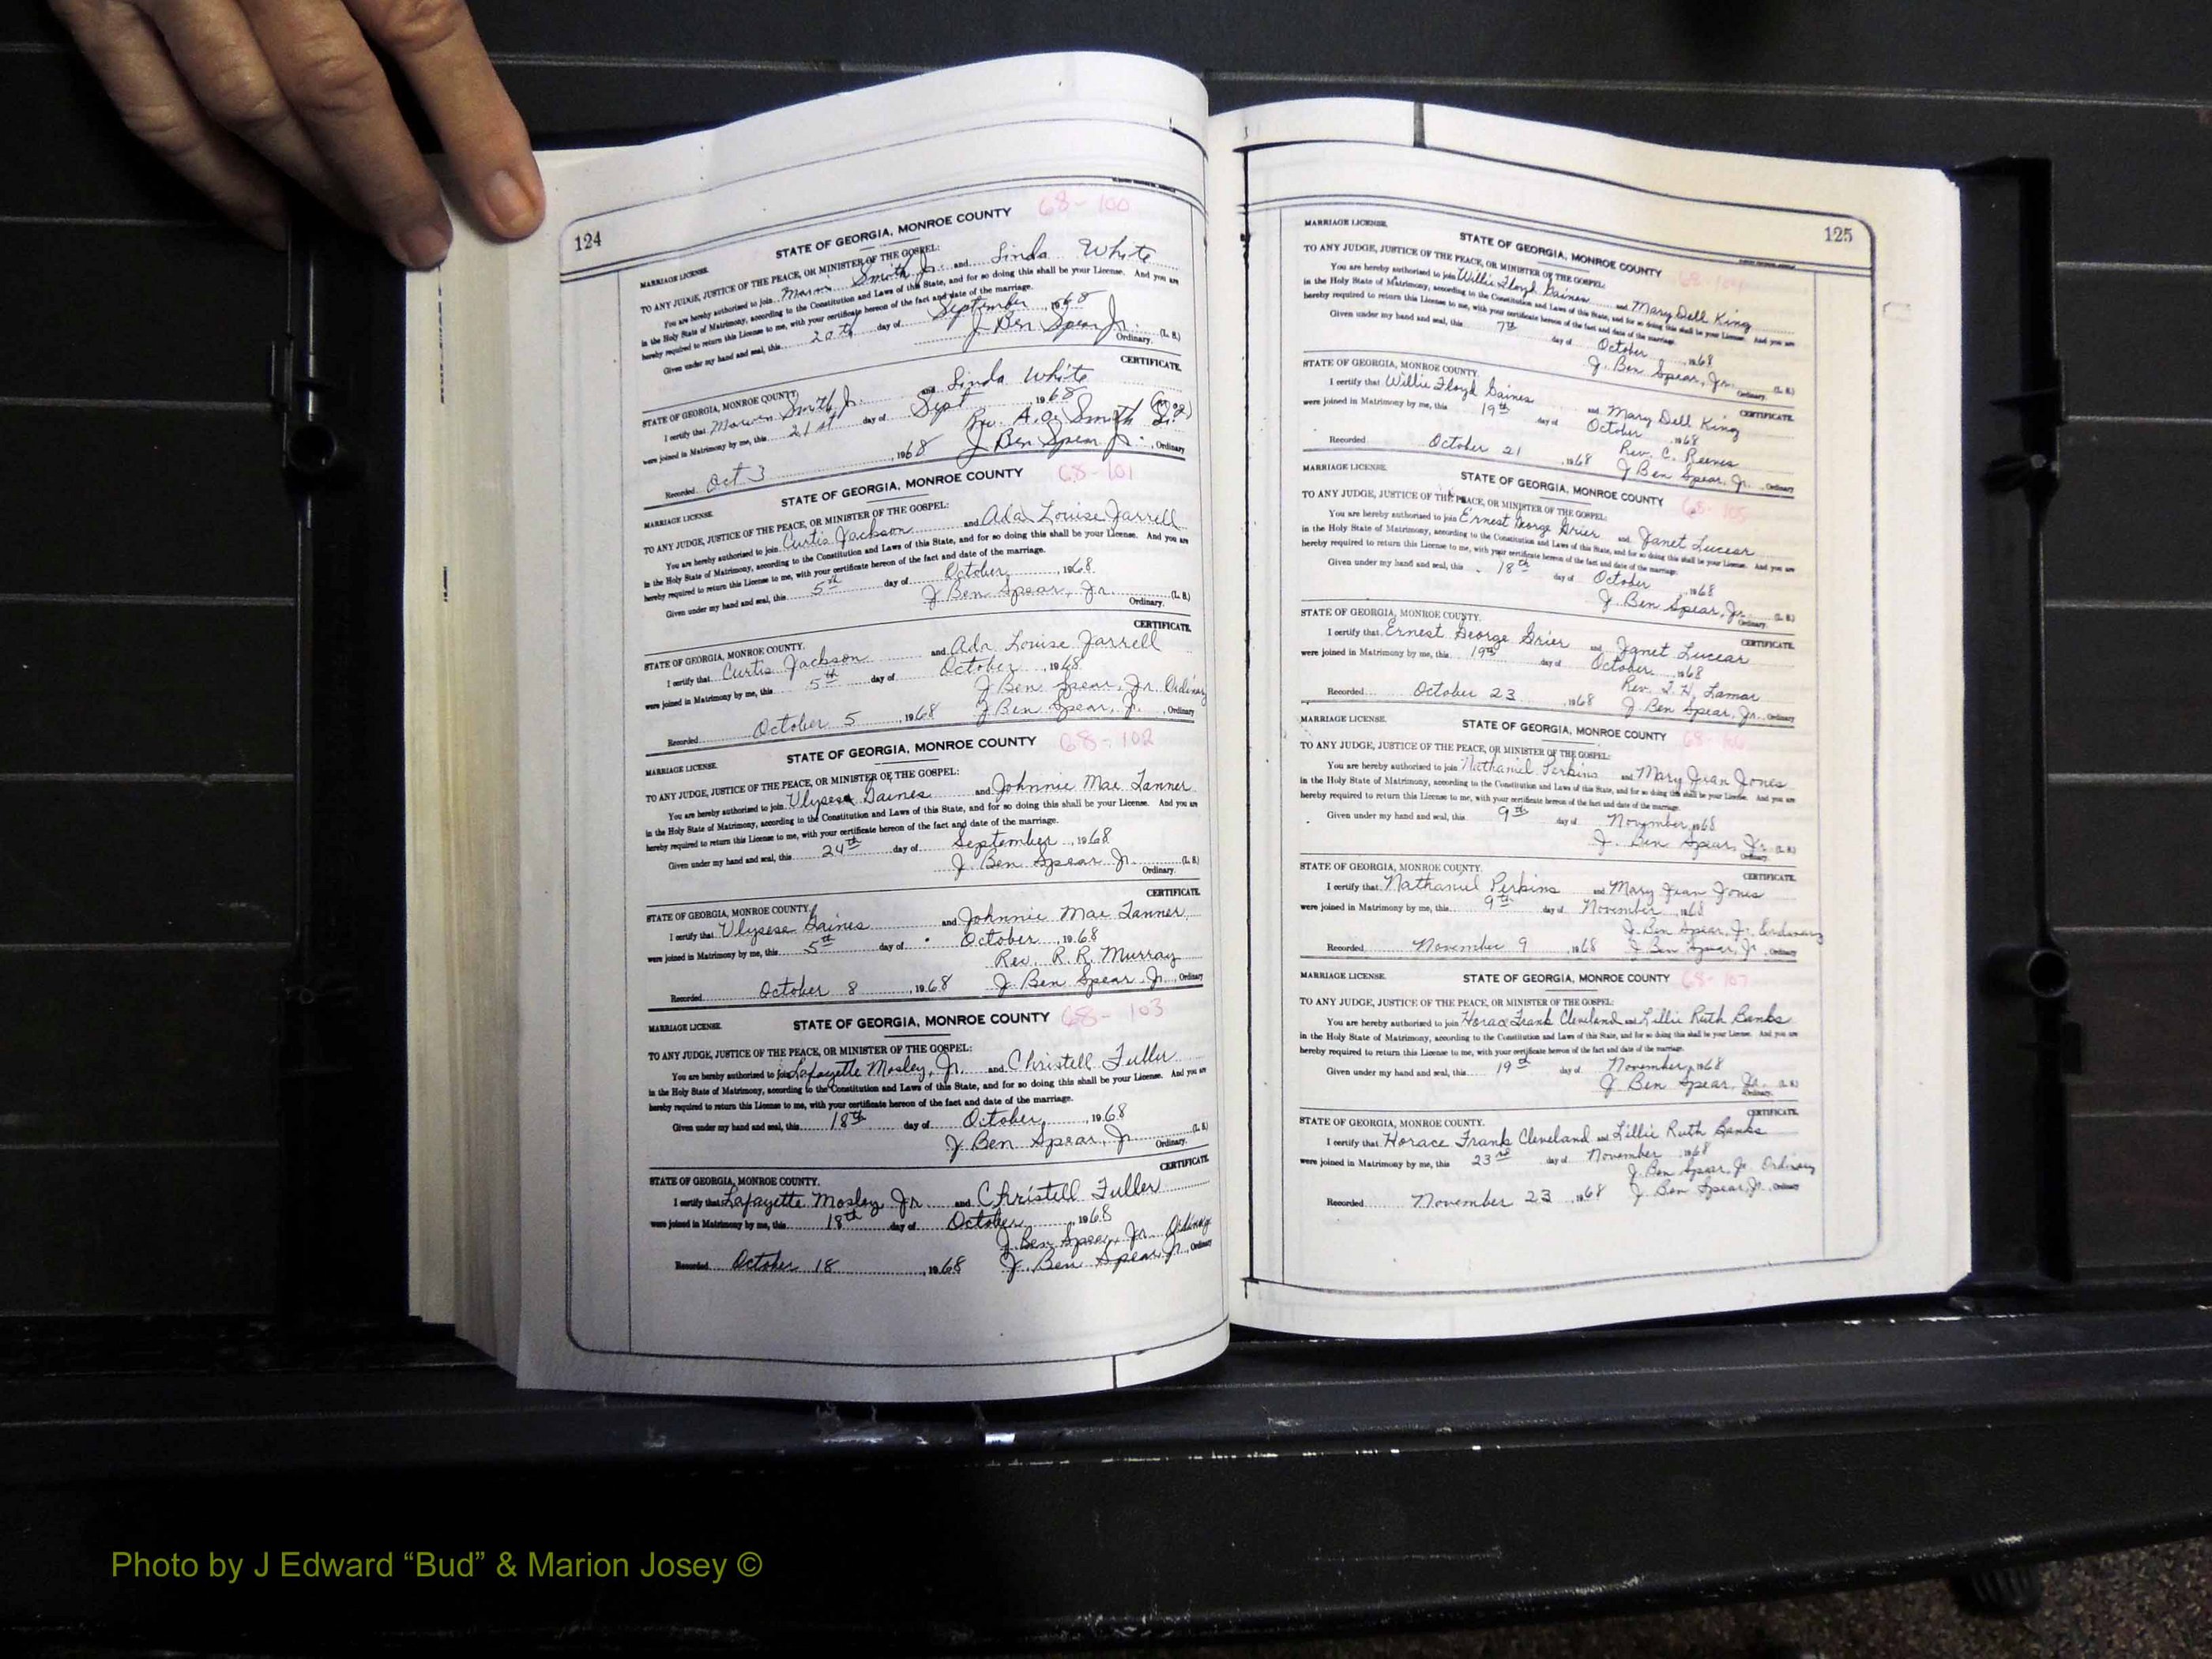 124
STATE OF GEORGIA, MONROE COUNTY 68-100
MARRIAGE LICENSE.
TO ANY JUDGE, JUSTICE OF THE PEACE, OR MINISTER OF THE GOSPEL:
You are hereby authorized to join Smith Jr. and Linda White
in the Holy State of Matrimony, according to the Constitution and Laws of this State, and for so doing this shall be your License. And you are
hereby required to return this License to me, with your certificate hereon of the fact and date of the marriage.
Given under my hand and seal, this 20th day of September, 1968
J Ben Spear Jr. (L. S.)
Ordinary.
CERTIFICATE.
STATE OF GEORGIA, MONROE COUNTY.
I certify that Smith Jr. and Linda White
were joined in Matrimony by me, this 21st day of Sept 1968
Rev. A. Smith
Recorded Oct 3, 1968 J Ben Spear Jr., Ordinary
STATE OF GEORGIA, MONROE COUNTY 68-101
MARRIAGE LICENSE.
TO ANY JUDGE, JUSTICE OF THE PEACE, OR MINISTER OF THE GOSPEL:
You are hereby authorized to join Curtis Jackson and Ada Louise Jarrell
in the Holy State of Matrimony, according to the Constitution and Laws of this State, and for so doing this shall be your License. And you are
hereby required to return this License to me, with your certificate hereon of the fact and date of the marriage.
Given under my hand and seal, this 5th day of October, 1968
J Ben Spear, Jr. (L. S.)
Ordinary.
CERTIFICATE.
STATE OF GEORGIA, MONROE COUNTY.
I certify that Curtis Jackson and Ada Louise Jarrell
were joined in Matrimony by me, this 5th day of October, 1968
J Ben Spear, Jr. Ordinary
Recorded October 5, 1968 J Ben Spear, Jr., Ordinary
STATE OF GEORGIA, MONROE COUNTY 68-102
MARRIAGE LICENSE.
TO ANY JUDGE, JUSTICE OF THE PEACE, OR MINISTER OF THE GOSPEL:
You are hereby authorized to join Ulysese Gaines and Johnnie Mae Tanner
in the Holy State of Matrimony, according to the Constitution and Laws of this State, and for so doing this shall be your License. And you are
hereby required to return this License to me, with your certificate hereon of the fact and date of the marriage.
Given under my hand and seal, this 24th day of September, 1968
J. Ben Spear Jr. (L. S.)
Ordinary.
CERTIFICATE.
STATE OF GEORGIA, MONROE COUNTY.
I certify that Ulysese Gaines and Johnnie Mae Tanner
were joined in Matrimony by me, this 5th day of October, 1968
Rev. R. R. Murray
Recorded October 8, 1968 J. Ben Spear, Jr., Ordinary
MARRIAGE LICENSE. STATE OF GEORGIA, MONROE COUNTY 68-103
TO ANY JUDGE, JUSTICE OF THE PEACE, OR MINISTER OF THE GOSPEL:
You are hereby authorized to join Lafayette Mosley, Jr. and Christell Fuller
in the Holy State of Matrimony, according to the Constitution and Laws of this State, and for so doing this shall be your License. And you are
hereby required to return this License to me, with your certificate hereon of the fact and date of the marriage.
Given under my hand and seal, this 18th day of October, 1968
J. Ben Spear, Jr (L. S.)
Ordinary.
CERTIFICATE.
STATE OF GEORGIA, MONROE COUNTY.
I certify that Lafayette Mosley Jr and Christell Fuller
were joined in Matrimony by me, this 18th day of October, 1968
J. Ben Spear, Jr. Ordinary
Recorded October 18, 1968 J. Ben Spear, Jr., Ordinary
125
MARRIAGE LICENSE. STATE OF GEORGIA, MONROE COUNTY 68-104
TO ANY JUDGE, JUSTICE OF THE PEACE, OR MINISTER OF THE GOSPEL:
You are hereby authorized to join Willie Floyd Gaines and Mary Dell King
in the Holy State of Matrimony, according to the Constitution and Laws of this State, and for so doing this shall be your License. And you are
hereby required to return this License to me, with your certificate hereon of the fact and date of the marriage.
Given under my hand and seal, this 7th day of October, 1968
J. Ben Spear, Jr. (L. S.)
Ordinary.
STATE OF GEORGIA, MONROE COUNTY. CERTIFICATE.
I certify that Willie Floyd Gaines and Mary Dell King
were joined in Matrimony by me, this 19th day of October, 1968
Rev. C. Reeves
Recorded October 21, 1968 J Ben Spear, Jr., Ordinary
MARRIAGE LICENSE. STATE OF GEORGIA, MONROE COUNTY 68-105
TO ANY JUDGE, JUSTICE OF THE PEACE, OR MINISTER OF THE GOSPEL:
You are hereby authorized to join Ernest George Grier and Janet Lucear
in the Holy State of Matrimony, according to the Constitution and Laws of this State, and for so doing this shall be your License. And you are
hereby required to return this License to me, with your certificate hereon of the fact and date of the marriage.
Given under my hand and seal, this 18th day of October, 1968
J. Ben Spear, Jr. (L. S.)
Ordinary.
STATE OF GEORGIA, MONROE COUNTY. CERTIFICATE.
I certify that Ernest George Grier and Janet Lucear
were joined in Matrimony by me, this 19th day of October, 1968
Rev. T. H. Lamar
Recorded October 23, 1968 J Ben Spear, Jr., Ordinary
MARRIAGE LICENSE. STATE OF GEORGIA, MONROE COUNTY 68-106
TO ANY JUDGE, JUSTICE OF THE PEACE, OR MINISTER OF THE GOSPEL:
You are hereby authorized to join Nathaniel Perkins and Mary Jean Jones
in the Holy State of Matrimony, according to the Constitution and Laws of this State, and for so doing this shall be your License. And you are
hereby required to return this License to me, with your certificate hereon of the fact and date of the marriage.
Given under my hand and seal, this 9th day of November, 1968
J. Ben Spear, Jr. (L. S.)
Ordinary.
STATE OF GEORGIA, MONROE COUNTY. CERTIFICATE.
I certify that Nathaniel Perkins and Mary Jean Jones
were joined in Matrimony by me, this 9th day of November, 1968
J. Ben Spear, Jr. Ordinary
Recorded November 9, 1968 J Ben Spear, Jr., Ordinary
MARRIAGE LICENSE. STATE OF GEORGIA, MONROE COUNTY 68-107
TO ANY JUDGE, JUSTICE OF THE PEACE, OR MINISTER OF THE GOSPEL:
You are hereby authorized to join Horace Frank Cleveland and Lillie Ruth Banks
in the Holy State of Matrimony, according to the Constitution and Laws of this State, and for so doing this shall be your License. And you are
hereby required to return this License to me, with your certificate hereon of the fact and date of the marriage.
Given under my hand and seal, this 19th day of November, 1968
J Ben Spear, Jr. (L. S.)
Ordinary.
CERTIFICATE.
STATE OF GEORGIA, MONROE COUNTY.
I certify that Horace Frank Cleveland and Lillie Ruth Banks
were joined in Matrimony by me, this 23rd day of November, 1968
J. Ben Spear, Jr. Ordinary
Recorded November 23, 1968 J. Ben Spear, Jr., Ordinary
Photo by J Edward “Bud” & Marion Josey ©